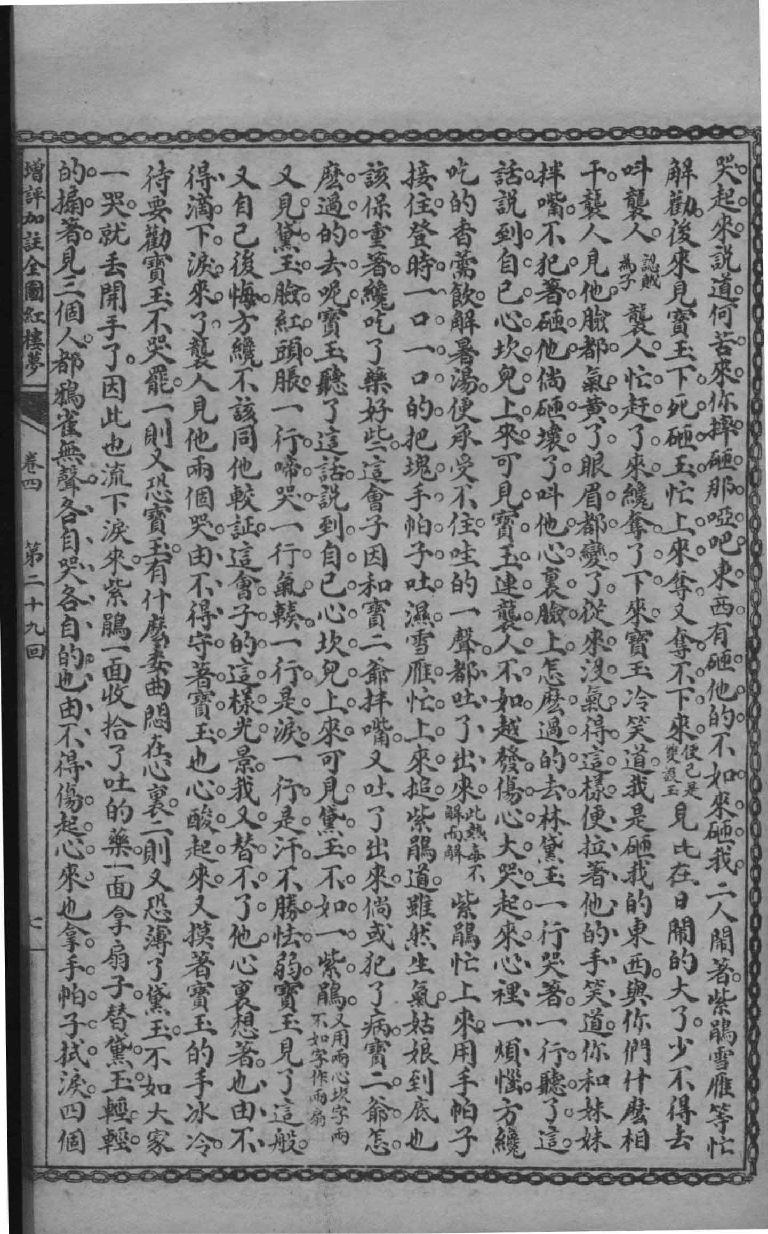 哭起來說道何苦來你摔砸那啞吧東西有砸他的不如來砸我二人鬧著紫鵑雪雁等忙
解勸後來見寶玉下死砸玉忙上來奪又奪不下來便已是雙護玉見比在日鬧的大了少不得去
呌襲人認賊為子襲人忙赶了來纔奪了下來寶玉冷笑道我是砸我的東西與你們什麼相
干襲人見他臉都氣黃了眼眉都變了從來沒氣得這樣便拉著他的手笑道你和妹妹
拌嘴不犯著砸他倘砸壞了呌他心裏臉上怎麼過的去林黛玉一行哭著一行聽了這
話說到自己心坎兒上來可見寶玉連襲人不如越發傷心大哭起來心裡一煩惱方纔
吃的香薷飲解暑湯便承受不住哇的一聲都吐了出來此熱毒不解而解紫鵑忙上來用手帕子
接住登時一口一口的把塊手帕子吐濕雪雁忙上來搥紫鵑道雖然生氣姑娘到底也
該保重著纔吃了藥好些這會子因和寶二爺拌嘴又吐了出來倘或犯了病寶二爺怎
麼過的去呢寶玉聽了這話說到自己心坎兒上來可見黛玉不如一紫鵑又用兩心坎字兩不如字作兩扇
又見黛玉臉紅頭脹一行啼哭一行氣轃一行是淚一行是汗不勝怯弱寶玉見了這般
又自己後悔方纔不該同他較証這會子的這樣光景我又替不了他心裏想著也由不
得滴下淚來了襲人見他兩個哭由不得守著寶玉也心酸起來又摸著寶玉的手冰冷
待要勸寶玉不哭罷一則又恐寶玉有什麼委曲悶在心裏二則又恐薄了黛玉不如大家
一哭就丟開手了因此也流下淚來紫鵑一面收拾了吐的藥一面拿扇子替黛玉輕輕
的搧著見三個人都鴉雀無聲各自哭各自的也由不得傷起心來也拿手帕子拭淚四個
增評加註全圖紅樓夢 卷四 第二十九回 七